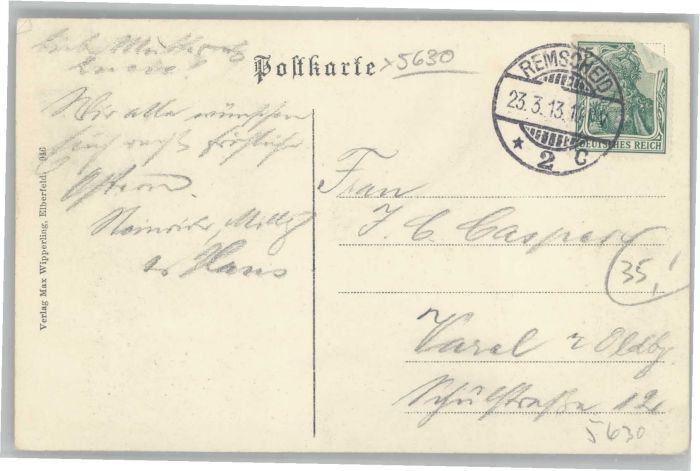 Postkarte
x5630
REMSCHEID
23.3.13.
* 2 C
DEUTSCHES REICH
Liebe Mutter
Wir alle wünschen
Euch recht fröhliche
Ostern.
Heinrich, Milly
u Hans
Frau
J. C. Caspers
35,!
Varel i Oldbg
Schulstraße 12
5630
Verlag Max Wipperling, Elberfeld. 946